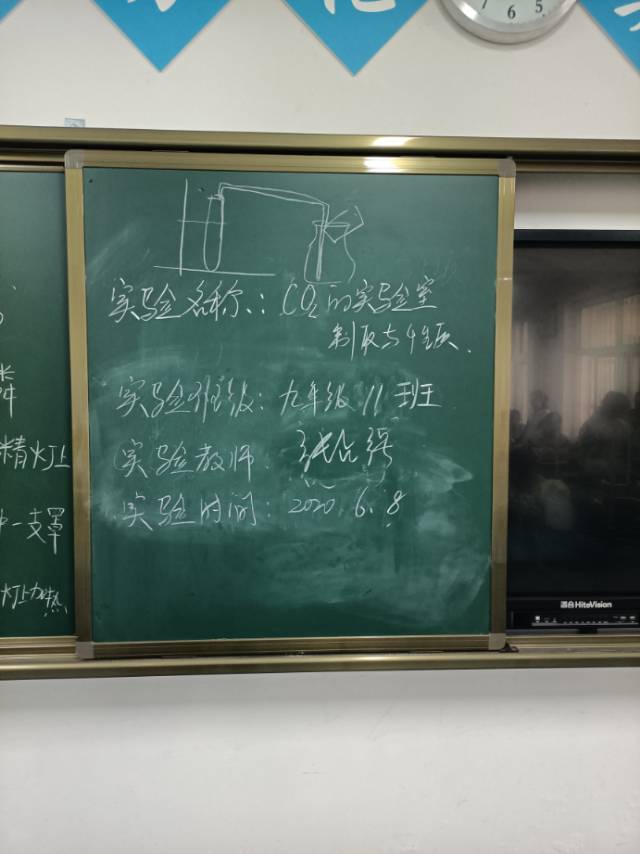 7 6 5
化
实验名称:CO₂的实验室
制取与性质.
实验班级:九年级 11 班
实验教师:
实验时间: 2020. 6. 8
精灯上
一支
灯上加热
HiteVision